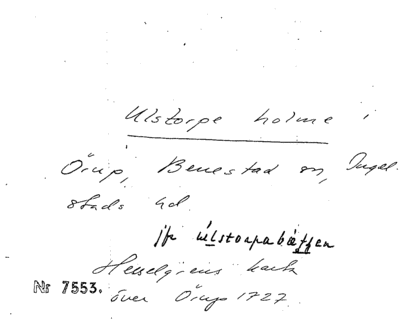 Ulstorpe holme i
Örup, Benestad sn, Ingel-
stads hd.
jfr ulstorpabäţţen
Hesselgrens karta
över Örup 1727.
Nr 7553.